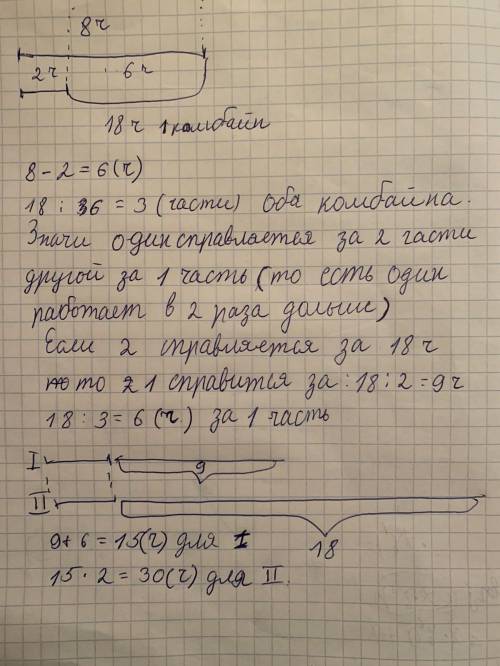 8ч
2ч 6ч
18ч 1комбайн
8 - 2 = 6(ч)
18 : 6 = 3 (части) оба комбайна.
Значи один справляется за 2 части
другой за 1 часть (то есть один
работает в 2 раза дольше)
Если 2 справляется за 18ч
то 1 справится за :18:2=9ч
18 : 3 = 6 (ч.) за 1 часть
I 9
II
18
9+6 = 15(ч) для I
15 · 2 = 30(ч) для II.